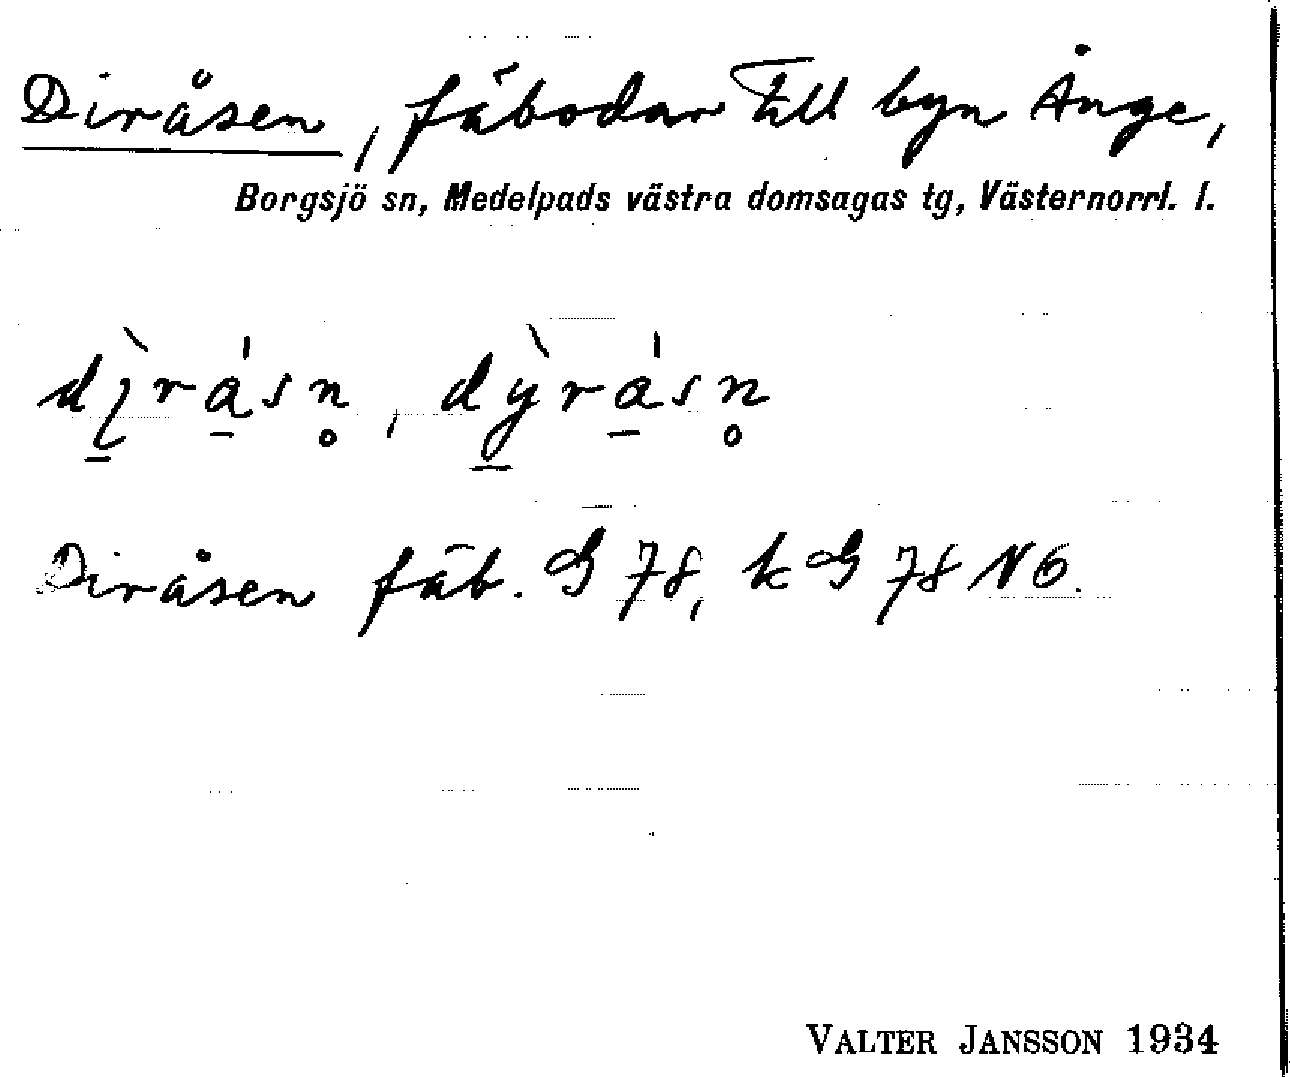 Diråsen, fäbodar till byn Ånge,
Borgsjö sn, Medelpads västra domsagas tg, Västernorrl. l.
dı̱̀ra̱̍sn̥, dỳ̱ra̱̍sn̥
Diråsen fäb. G 78, k G 78 NÖ.
VALTER JANSSON 1934